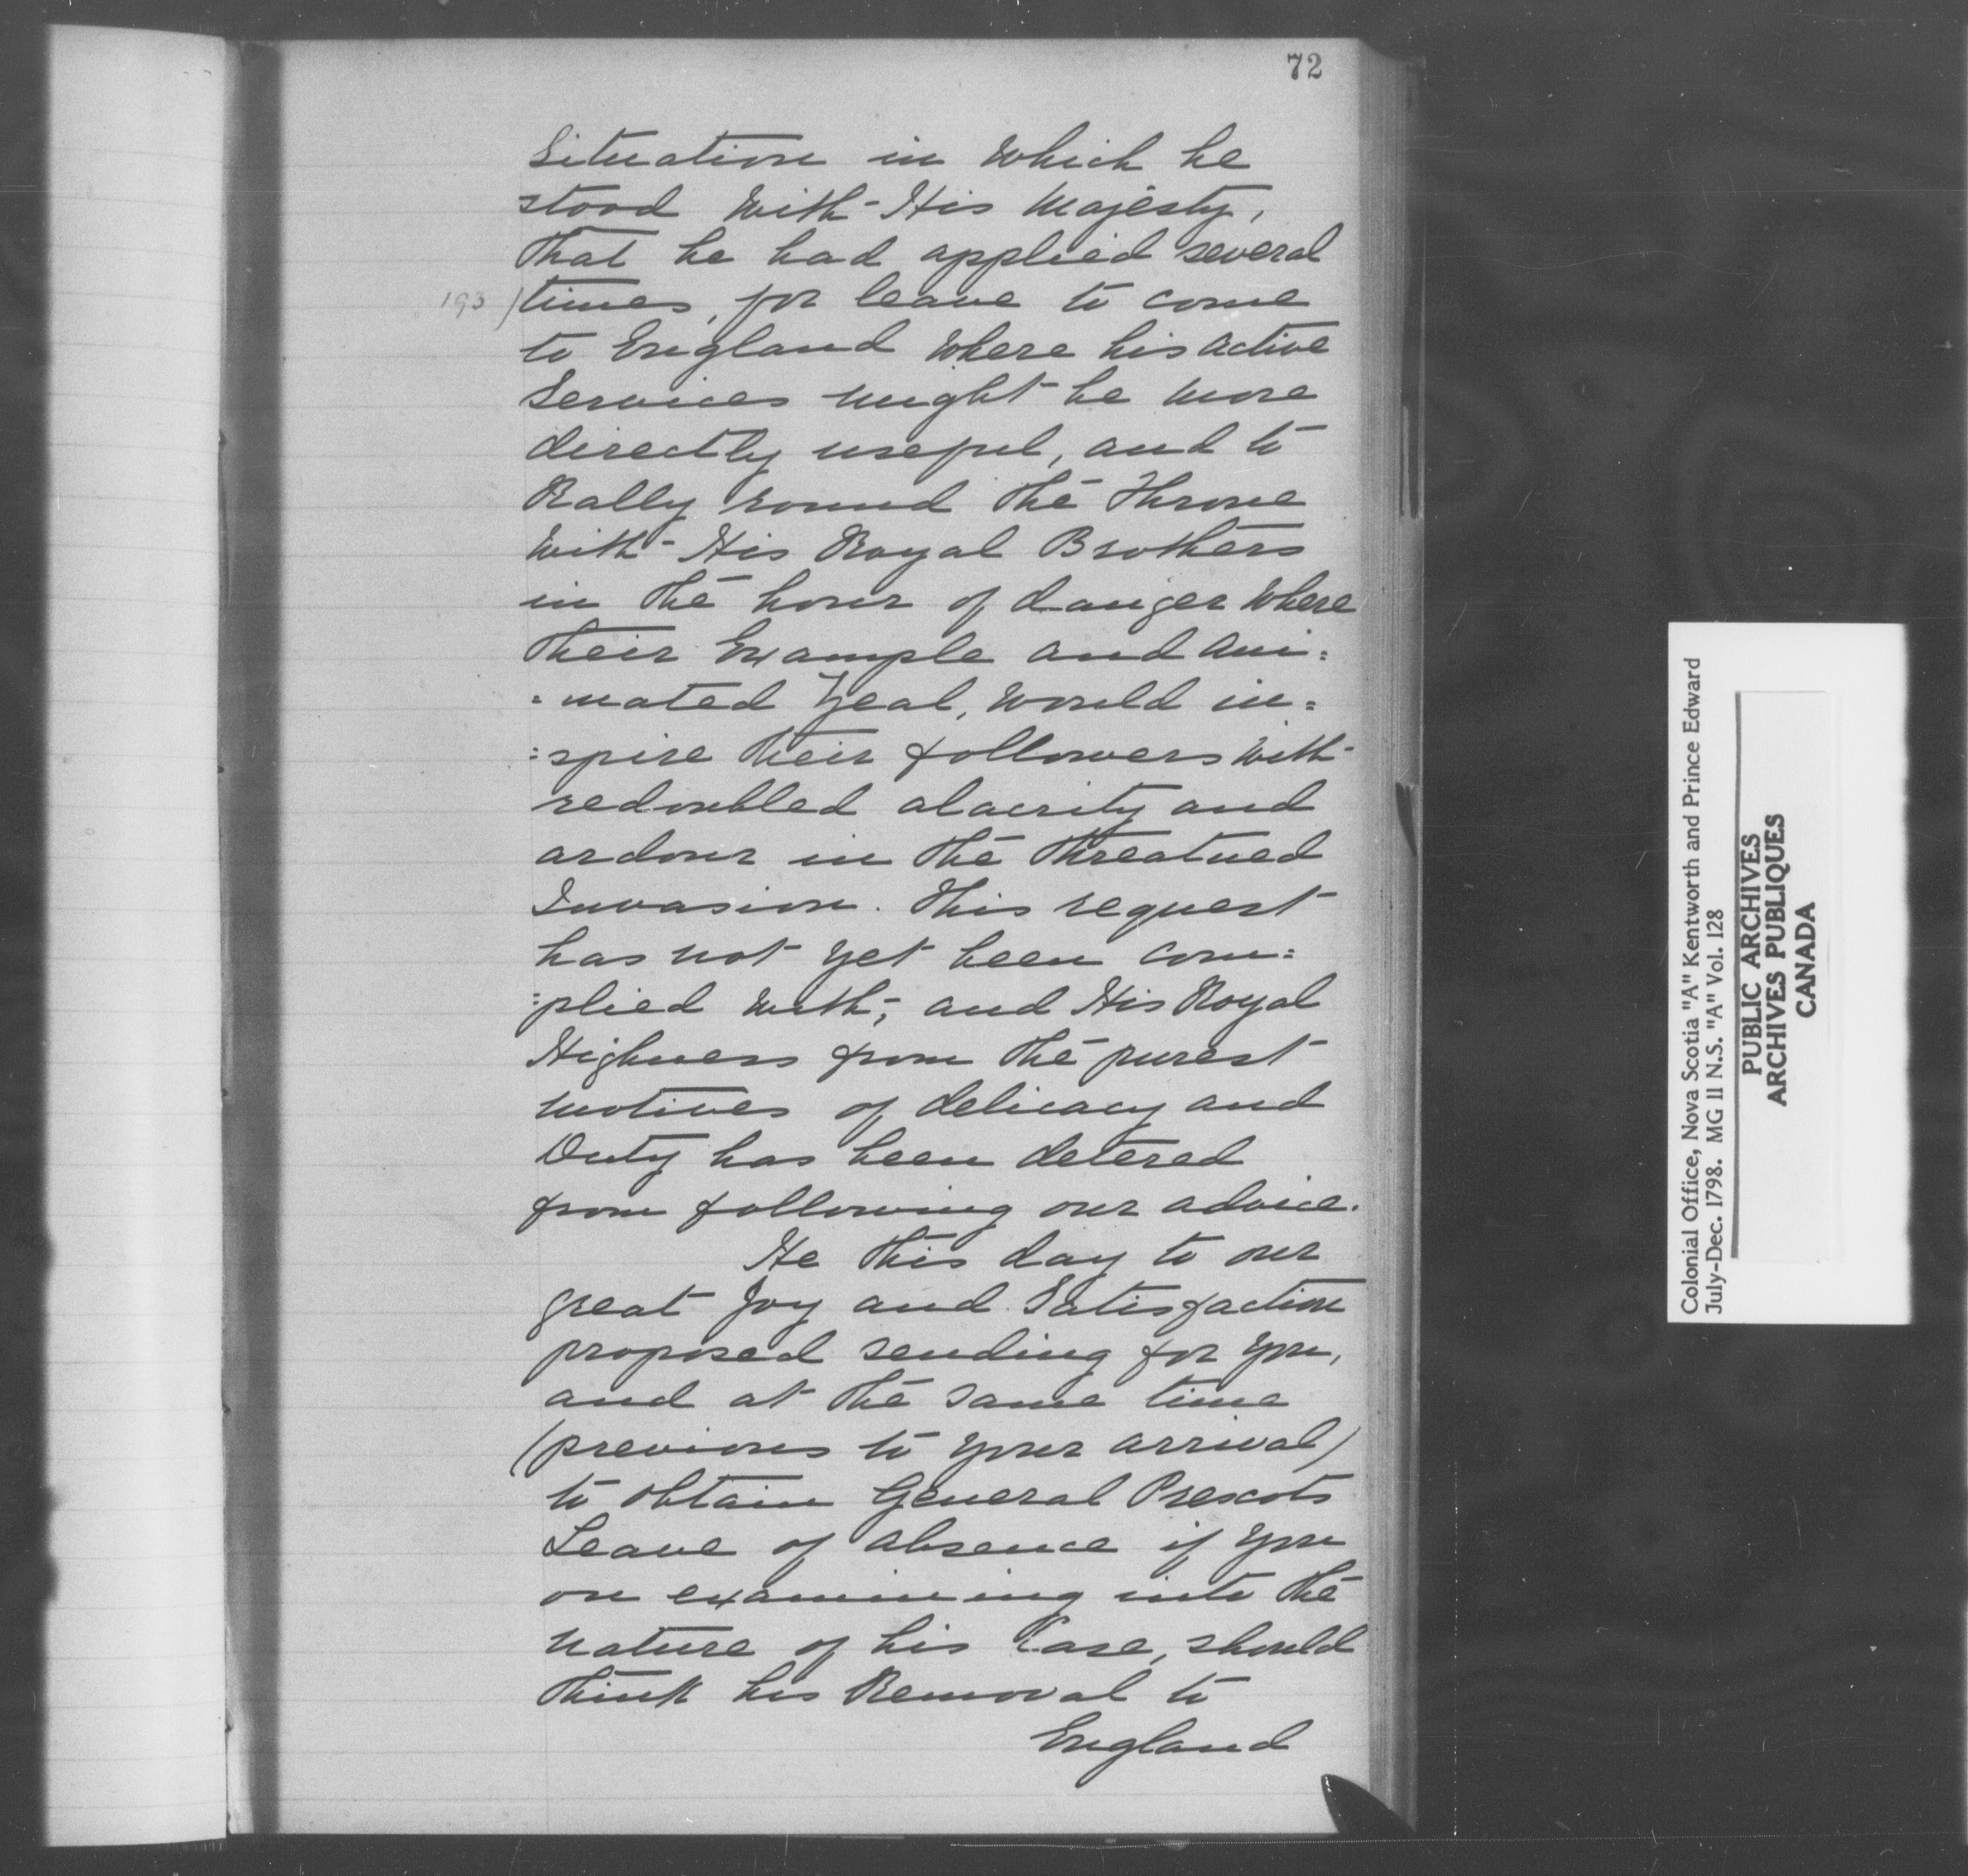 72
Situation in Which he
stood With His Majesty,
That he had applied several
193 / times, for leave to come
to England Where his active
Services might be more
directly useful, and to
Rally round The Throne
With His Royal Brothers
in The hour of danger Where
Their Example and Ani=
=mated Zeal, would in=
=spire Their followers With
redoubled alacrity and
ardour in The Threatned
Invasion. This request
has not yet been com=
=plied With; and His Royal
Highness from The purest
motives of delicacy and
Duty has been detered
from following our advice.
He This day to our
great Joy and Satisfaction
proposed sending for you,
and at The same time
(previous to your arrival)
to obtain General Prescots
Leave of absence if you
on examining into The
nature of his Case, should
Think his Removal to
England
Colonial Office, Nova Scotia "A" Kentworth and Prince Edward
July-Dec. 1798. MG 11 N.S. "A" Vol. 128
PUBLIC ARCHIVES
ARCHIVES PUBLIQUES
CANADA